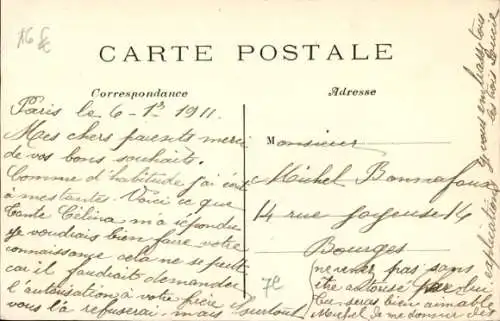 CARTE POSTALE
Correspondance
Adresse
Paris le 6-1er 1911.
Mes chers parents merci
de vos bons souhaits.
Comme d'habitude j'ai écrit
à mes tantes. Voici ce que
tante Célina m'a répondu
je voudrais bien faire votre
connaissance cela ne se peut
car il faudrait demander
l'autorisation à votre frère il
vous l'a refuserai, mais surtout
Monsieur
Michel Bonnefoux
14 rue Joyeuse 14
Bourges
ne venez pas sans
être autorisé par lui
Tu serais bien aimable
Michel de me donner des
explications
je vous embrasse tous